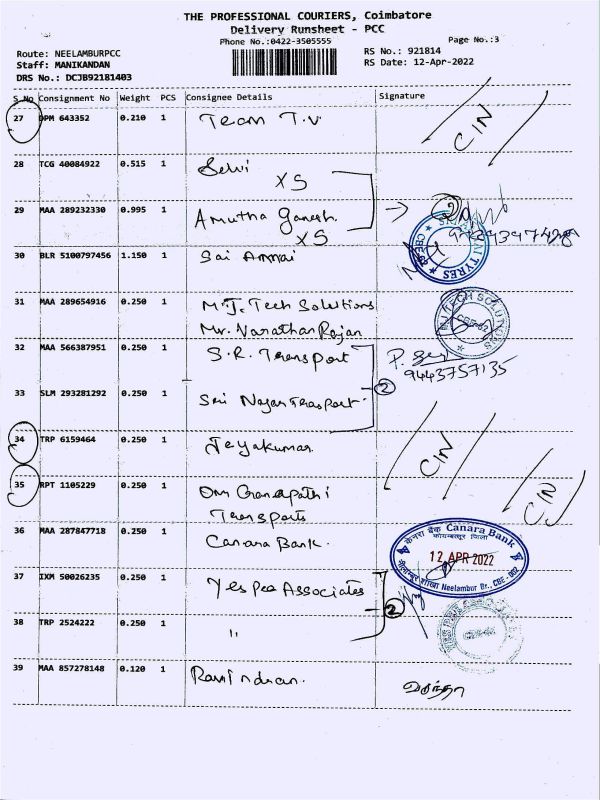 THE PROFESSIONAL COURIERS, Coimbatore
Delivery Runsheet - PCC
Phone No.:0422-3505555
Page No.:3
Route: NEELAMBURPCC
RS No.: 921814
Staff: MANIKANDAN
RS Date: 12-Apr-2022
DRS No.: DCJB92181403
S.No Consignment No Weight PCS Consignee Details Signature
27 DPM 643352 0.210 1 Team T.V CIN
28 TCG 40084922 0.515 1 Selvi
XS
29 MAA 289232330 0.995 1 Amutha Ganesh
XS
30 BLR 5100797456 1.150 1 Sai Ammai
TYRES
31 MAA 289654916 0.250 1 M.J. Tech Solutions
Mr. Narathan Rajan
M.J. TECH SOLUTIONS
32 MAA 566387951 0.250 1 S.R. Transport
9443757135
33 SLM 293281292 0.250 1 Sri Nagar Trasport 2
34 TRP 6159464 0.250 1 Jeyakumar CIN
35 RPT 1105229 0.250 1 Om Ganapathi CIN
Transports
36 MAA 287847718 0.250 1 Canara Bank.
केनरा बैंक Canara Bank
12 APR 2022
Neelambur Br., CBE - 002
37 IXM 50026235 0.250 1 Yes Pee Associates
2
38 TRP 2524222 0.250 1 "
39 MAA 857278148 0.120 1 Ravindran.